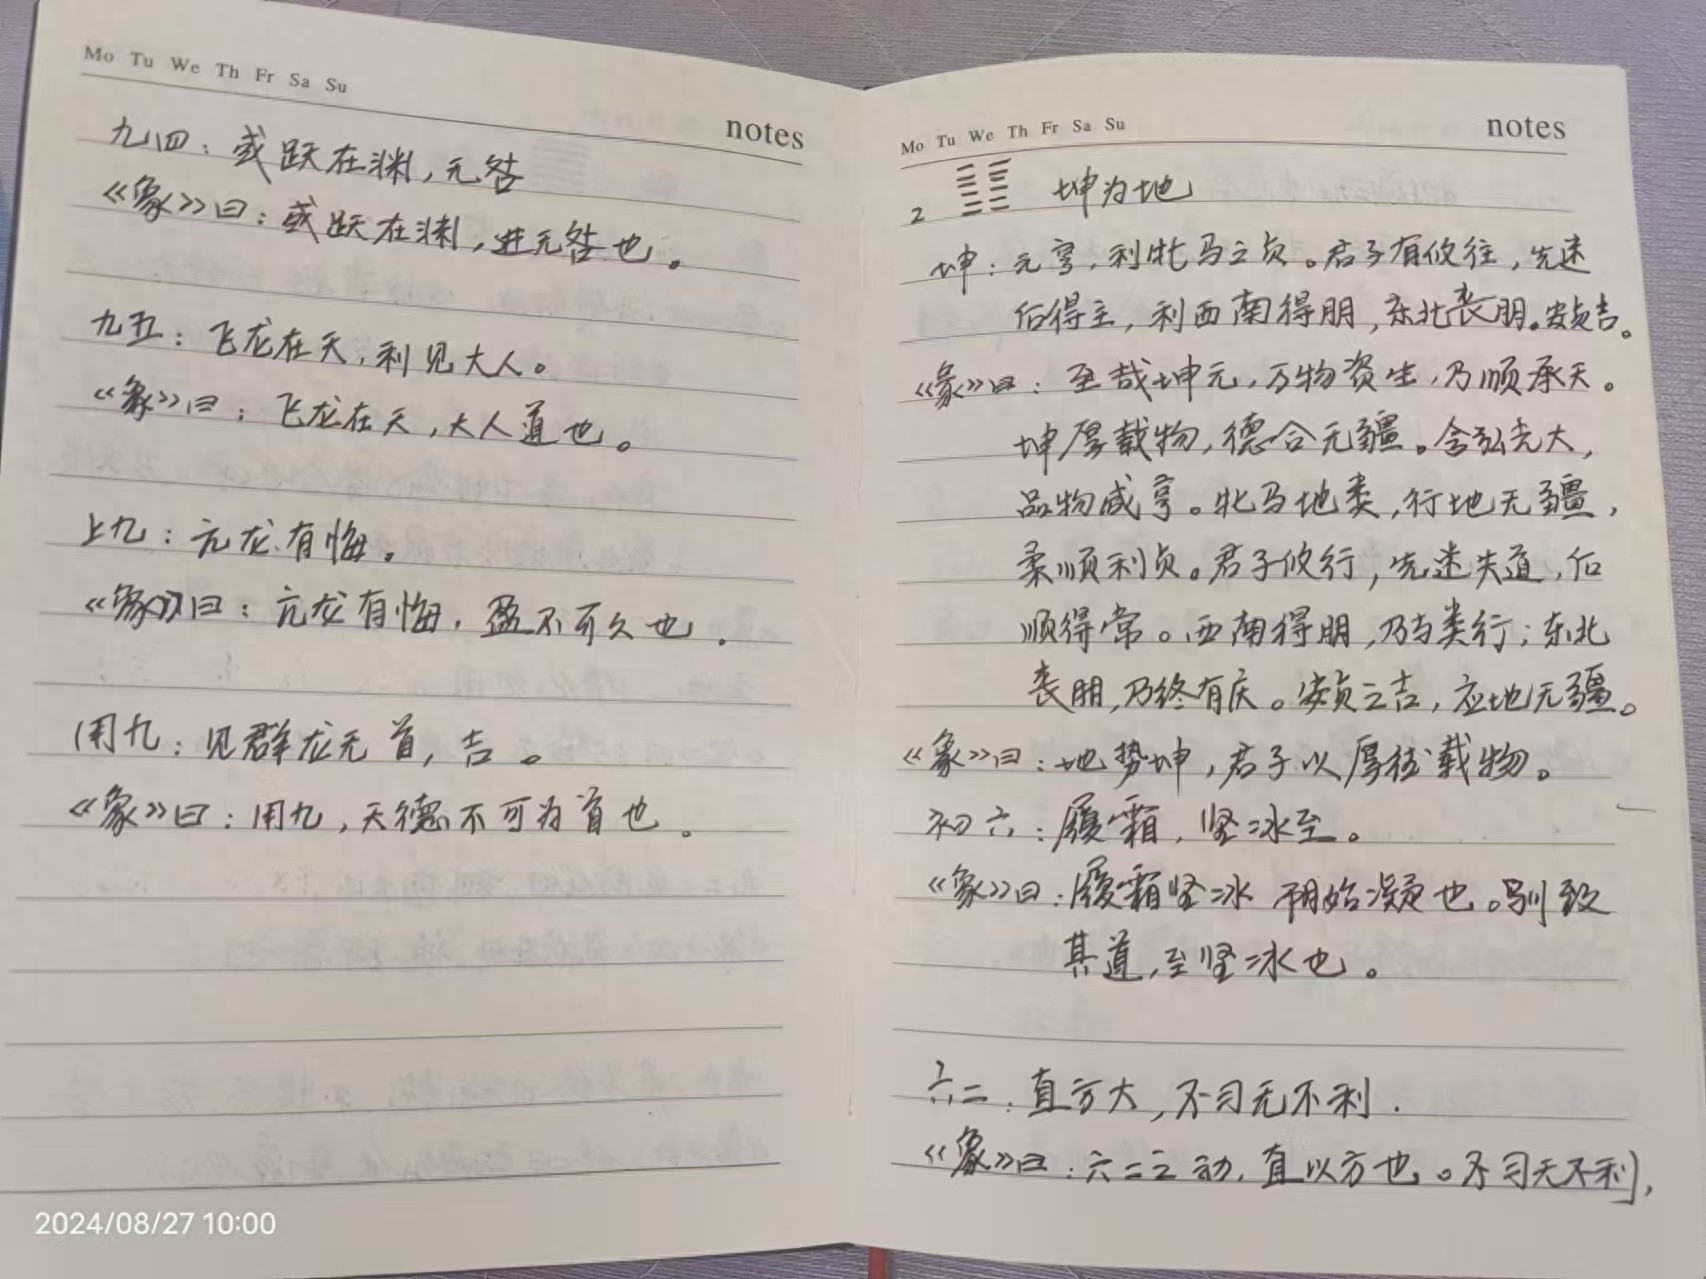 Mo Tu We Th Fr Sa Su
notes
九四：或跃在渊，无咎
《象》曰：或跃在渊，进无咎也。
九五：飞龙在天，利见大人。
《象》曰：飞龙在天，大人道也。
上九：亢龙有悔。
《象》曰：亢龙有悔，盈不可久也.
用九：见群龙无首，吉。
《象》曰：用九，天德不可为首也。
2024/08/27 10:00
Mo Tu We Th Fr Sa Su
notes
2 坤为地
坤：元亨，利牝马之贞。君子有攸往，先迷
后得主，利西南得朋，东北丧朋。安贞吉。
《彖》曰：至哉坤元，万物资生，乃顺承天。
坤厚载物，德合无疆。含弘光大，
品物咸亨。牝马地类，行地无疆，
柔顺利贞。君子攸行，先迷失道，后
顺得常。西南得朋，乃与类行；东北
丧朋，乃终有庆。安贞之吉，应地无疆。
《象》曰：地势坤，君子以厚德载物。
初六：履霜，坚冰至。
《象》曰：履霜坚冰 阴始凝也。驯致
其道，至坚冰也。
六二：直方大，不习无不利.
《象》曰：六二之动，直以方也。不习无不利，